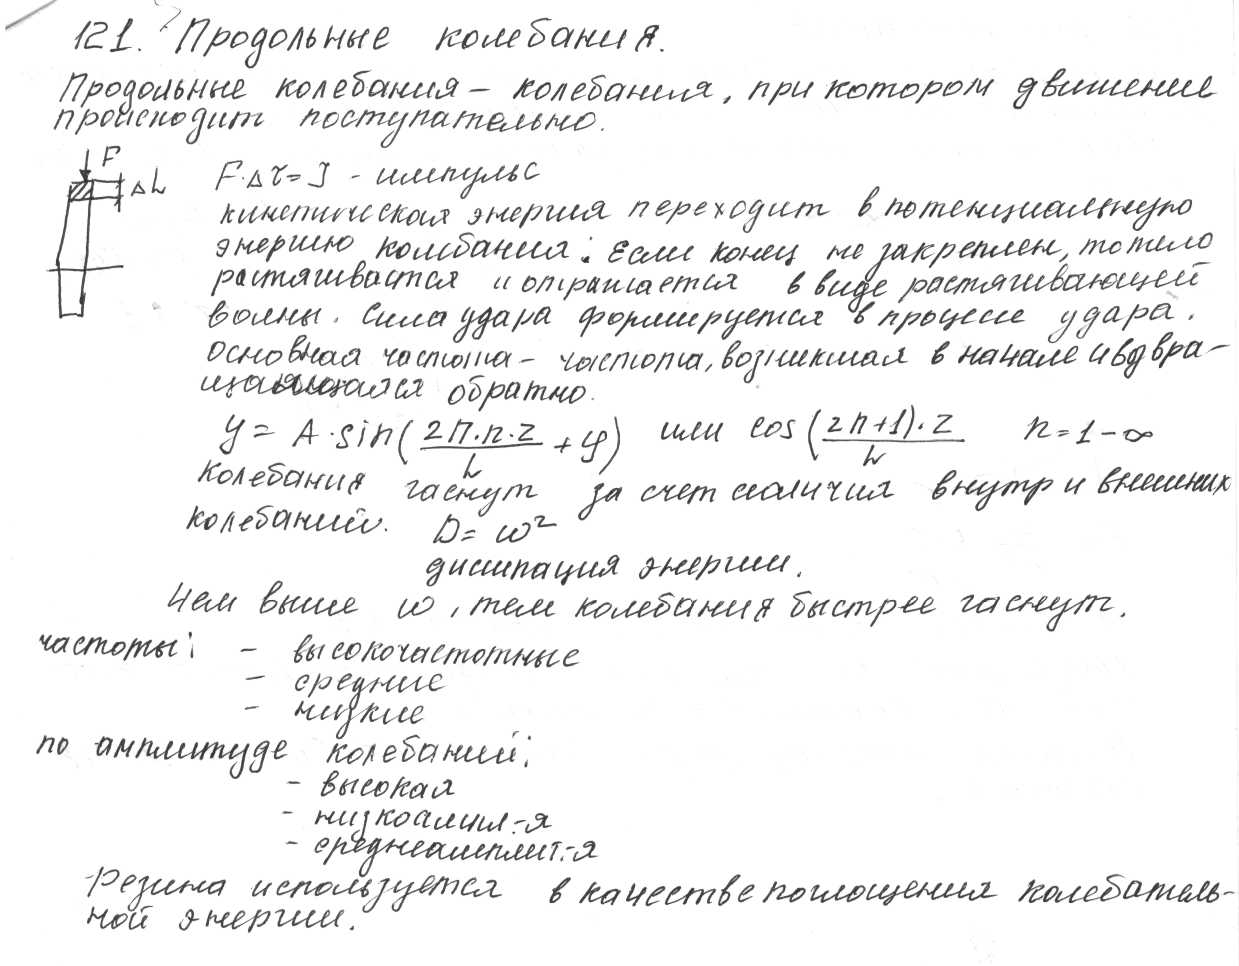 121. Продольные колебания.
Продольные колебания – колебания, при котором движение
происходит поступательно.
F
ΔL
F·Δτ=J - импульс
кинетическая энергия переходит в потенциальную
энергию колебания. Если конец не закреплен, то тело
растягивается и отражается в виде растягивающей
волны. Сила удара формируется в процессе удара.
Основная частота – частота, возникшая в начале и
обратно.
y = A·sin(2П·n·z/L + φ) или cos(2n+1)·z/L n=1-∞
Колебания гаснут за счет наличия внутр и внешних
колебаний. D= ω²
диссипация энергии.
Чем выше ω, тем колебания быстрее гаснут.
частоты: - высокочастотные
- средние
- низкие
по амплитуде колебаний:
- высокая
- низкоампл.-я
- среднеамплит.-я
Резина используется в качестве поглощения колебатель-
ной энергии.